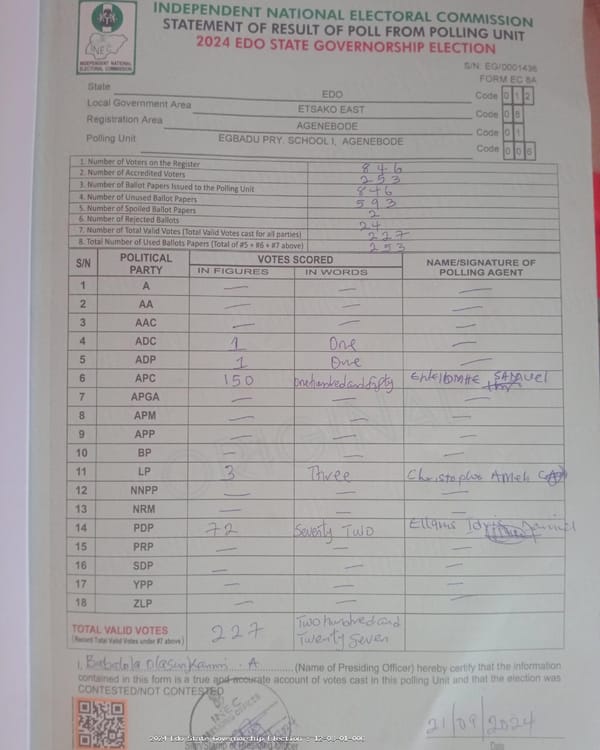 INDEPENDENT NATIONAL ELECTORAL COMMISSION
STATEMENT OF RESULT OF POLL FROM POLLING UNIT
2024 EDO STATE GOVERNORSHIP ELECTION
INEC
INDEPENDENT NATIONAL ELECTORAL COMMISSION
S/N: EG/0001436
FORM EC 8A
State EDO Code 0 1 2
Local Government Area ETSAKO EAST Code 0 8
Registration Area AGENEBODE Code 0 1
Polling Unit EGBADU PRY. SCHOOL I, AGENEBODE Code 0 0 6
1. Number of Voters on the Register 846
2. Number of Accredited Voters 253
3. Number of Ballot Papers Issued to the Polling Unit 846
4. Number of Unused Ballot Papers 593
5. Number of Spoiled Ballot Papers 2
6. Number of Rejected Ballots 24
7. Number of Total Valid Votes (Total Valid Votes cast for all parties) 227
8. Total Number of Used Ballots Papers (Total of #5 + #6 + #7 above) 253
S/N POLITICAL PARTY VOTES SCORED NAME/SIGNATURE OF POLLING AGENT
IN FIGURES IN WORDS
1 A — — —
2 AA — — —
3 AAC — — —
4 ADC 1 One —
5 ADP 1 One —
6 APC 150 One hundred and fifty SAMUEL
7 APGA — — —
8 APM — — —
9 APP — — —
10 BP — — —
11 LP 3 Three Christopher Ameh
12 NNPP — — —
13 NRM — — —
14 PDP 72 Seventy Two
15 PRP — — —
16 SDP — — —
17 YPP — — —
18 ZLP — — —
TOTAL VALID VOTES 227 Two hundred and Twenty Seven
(Record Total Valid Votes under #7 above)
I, Babalola Olasunkanmi . A (Name of Presiding Officer) hereby certify that the information
contained in this form is a true and accurate account of votes cast in this polling Unit and that the election was
CONTESTED/NOT CONTESTED
INEC
21/09/2024
2024 Edo State Governorship Election : 12-08-01-006
Date